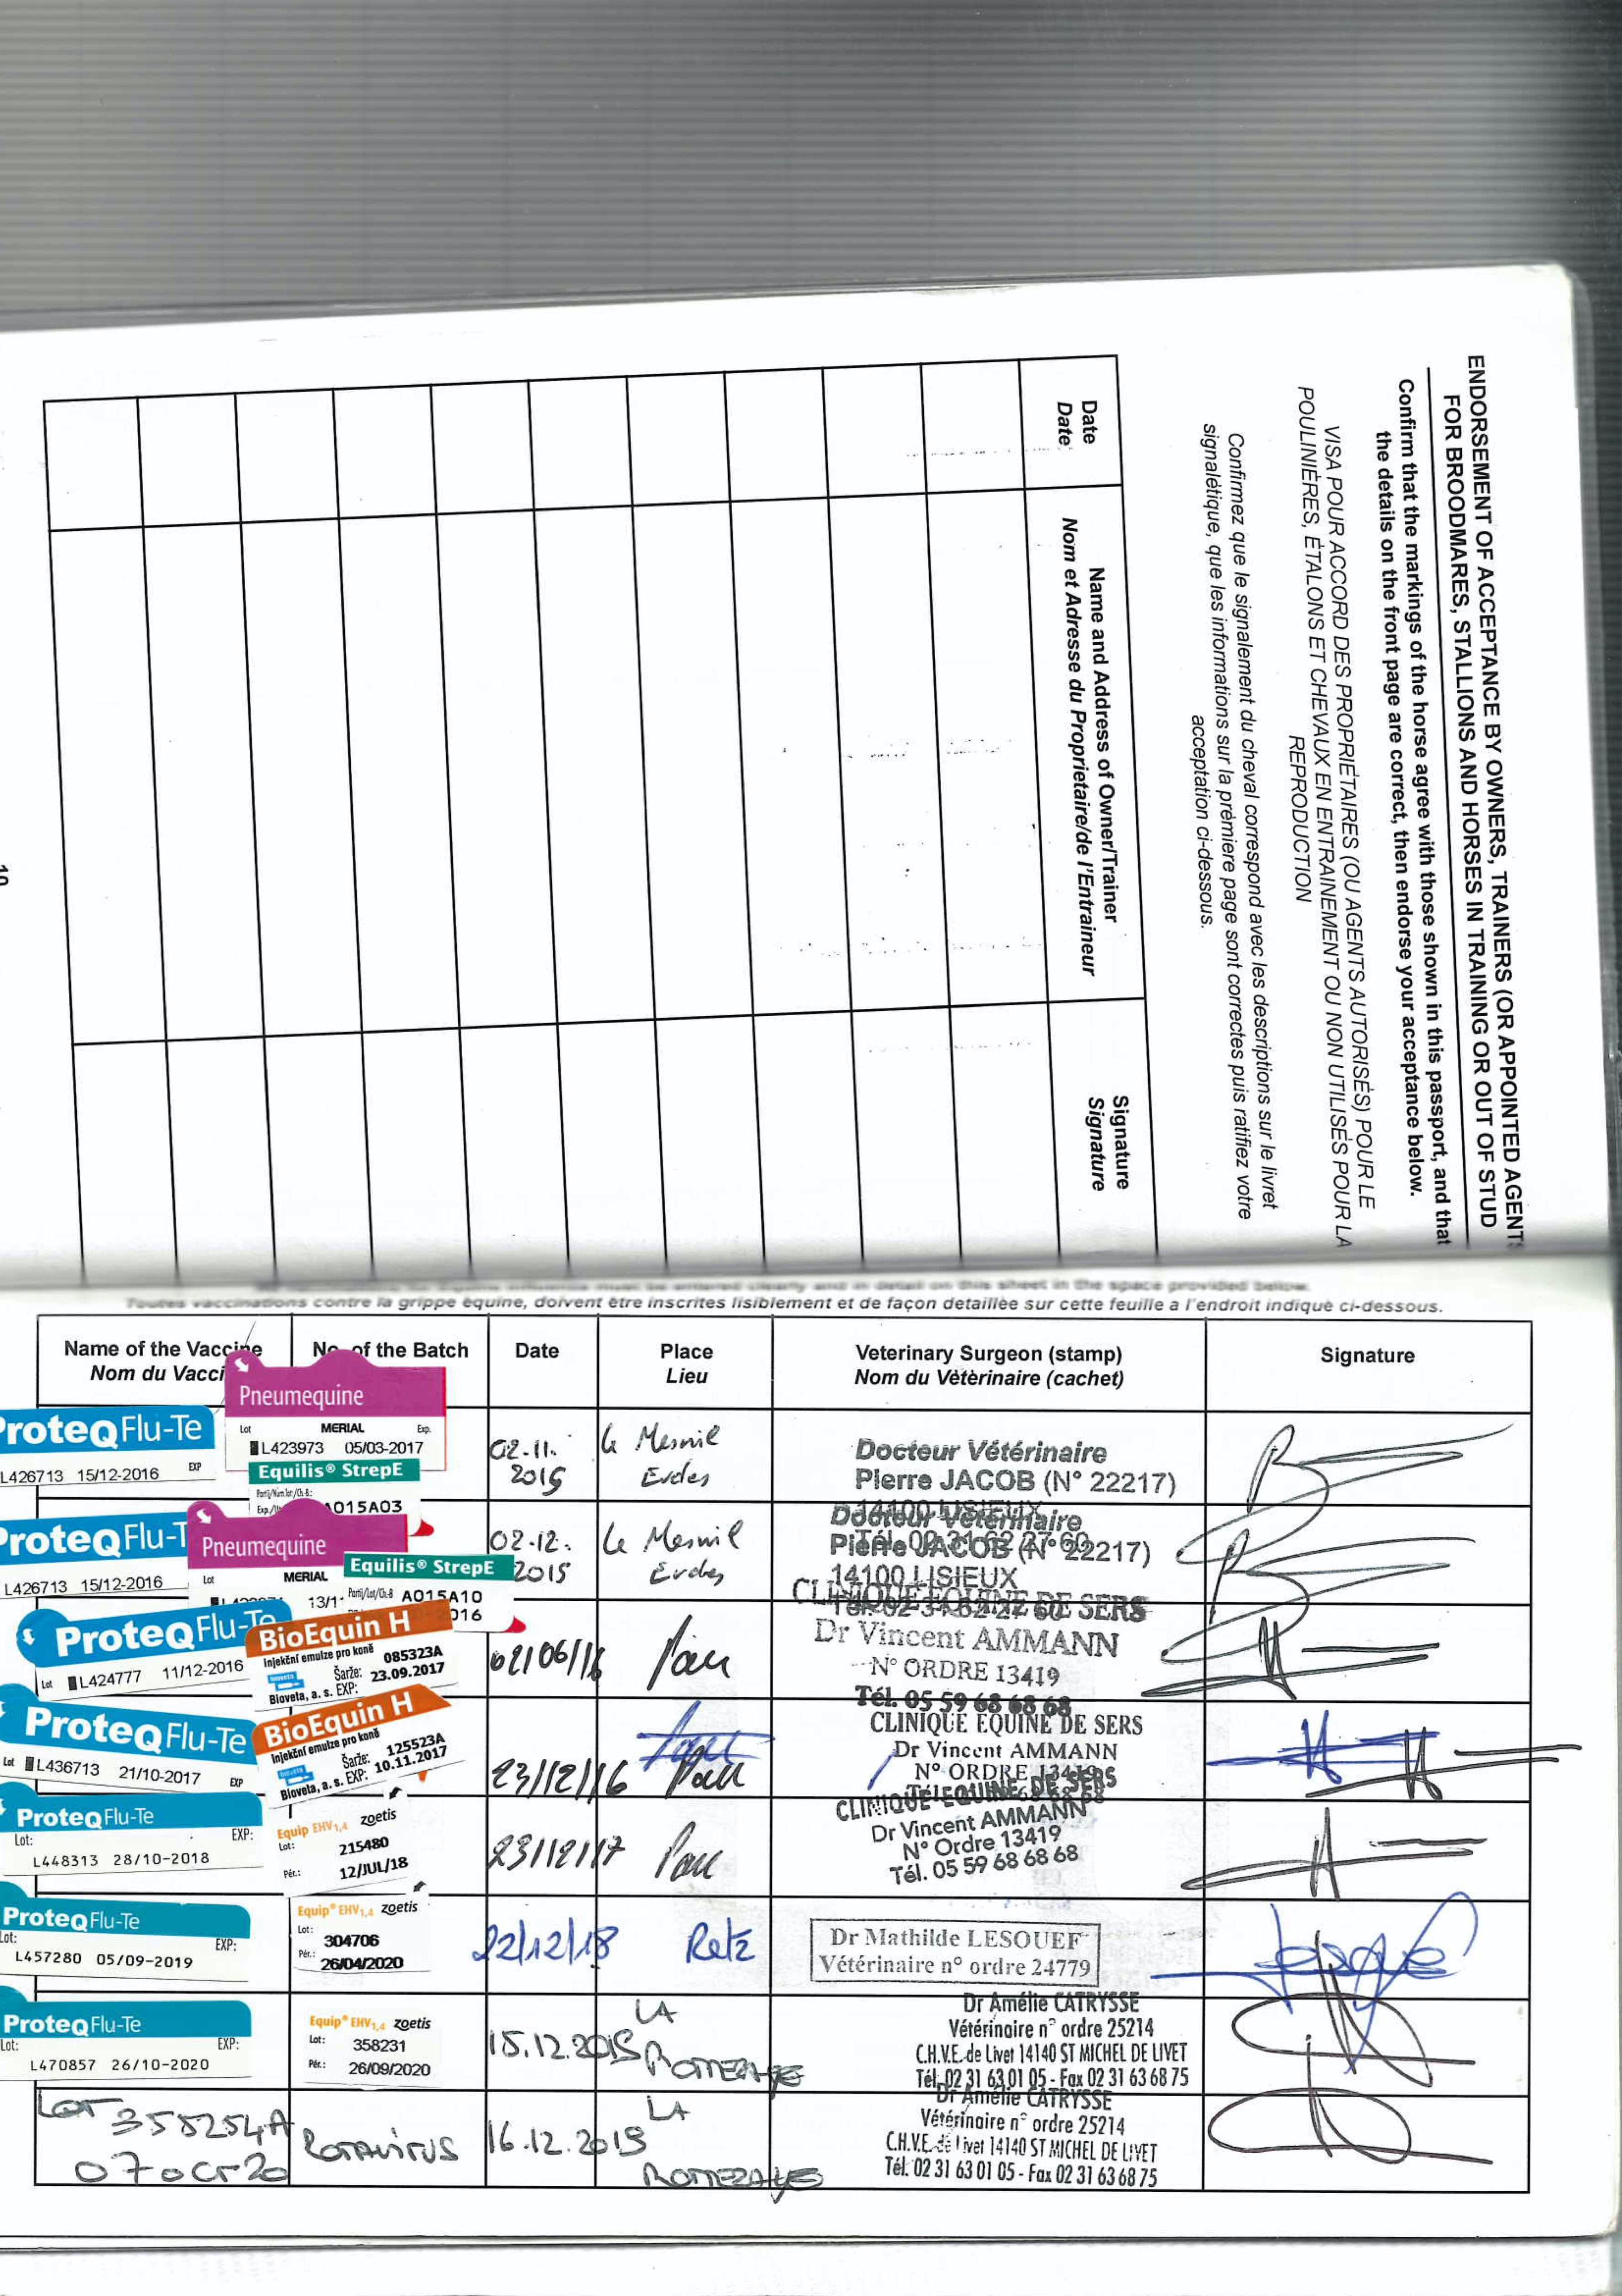 ENDORSEMENT OF ACCEPTANCE BY OWNERS, TRAINERS (OR APPOINTED AGENTS
FOR BROODMARES, STALLIONS AND HORSES IN TRAINING OR OUT OF STUD
Confirm that the markings of the horse agree with those shown in this passport, and that
the details on the front page are correct, then endorse your acceptance below.
VISA POUR ACCORD DES PROPRIÉTAIRES (OU AGENTS AUTORISÉS) POUR LE
POULINIÈRES, ÉTALONS ET CHEVAUX EN ENTRAINEMENT OU NON UTILISÉS POUR LA
REPRODUCTION
Confirmez que le signalement du cheval correspond avec les descriptions sur le livret
signalétique, que les informations sur la prémiere page sont correctes puis ratifiez votre
acceptation ci-dessous.
Date
Date
Name and Address of Owner/Trainer
Nom et Adresse du Proprietaire/de l'Entraineur
Signature
Signature
Toutes vaccinations contre la grippe équine, doivent être inscrites lisiblement et de façon detaillée sur cette feuille a l'endroit indiqué ci-dessous.
Name of the Vaccine
Nom du Vacci
No. of the Batch
Date
Place
Lieu
Veterinary Surgeon (stamp)
Nom du Vétèrinaire (cachet)
Signature
ProteqFlu-Te
L426713 15/12-2016 EXP
Pneumequine
Lot MERIAL Exp.
L423973 05/03-2017
Equilis® StrepE
A015A03
02.11.
2015
Le Mesnil
Docteur Vétérinaire
Pierre JACOB (N° 22217)
14100 LISIEUX
ProteqFlu-T
L426713 15/12-2016
Pneumequine
Lot MERIAL
13/1
Equilis® StrepE
A015A10
2016
02.12.
2015
Le Mesnil
Docteur Vétérinaire
Pierre JACOB (N° 22217)
14100 LISIEUX
Tél. 02 31 62 27 60
ProteqFlu-Te
Lot L424777 11/12-2016
BioEquin H
Injekční emulze pro koně
085323A
Šarže:
23.09.2017
Bioveta, a. s. EXP:
02/06/16
Pau
CLINIQUE EQUINE DE SERS
Dr Vincent AMMANN
N° ORDRE 13419
Tél. 05 59 68 68 68
ProteqFlu-Te
Lot L436713 21/10-2017 EXP
BioEquin H
Injekční emulze pro koně
125523A
Šarže:
10.11.2017
Bioveta, a. s. EXP:
23/12/16
Pau
CLINIQUE EQUINE DE SERS
Dr Vincent AMMANN
N° ORDRE 13419
ProteqFlu-Te
Lot: EXP:
L448313 28/10-2018
Equip EHV1,4 zoetis
Lot: 215480
Pér.: 12/JUL/18
23/12/17
Pau
CLINIQUE EQUINE DE SERS
Dr Vincent AMMANN
N° Ordre 13419
Tél. 05 59 68 68 68
ProteqFlu-Te
Lot: EXP:
L457280 05/09-2019
Equip® EHV1,4 zoetis
Lot: 304706
Pér.: 26/04/2020
22/12/18
Retz
Dr Mathilde LESOUEF
Vétérinaire n° ordre 24779
ProteqFlu-Te
Lot: EXP:
L470857 26/10-2020
Equip® EHV1,4 zoetis
Lot: 358231
Pér.: 26/09/2020
15.12.2019
LA
Dr Amélie CATRYSSE
Vétérinaire n° ordre 25214
C.H.V.E. de Livet 14140 ST MICHEL DE LIVET
Tél. 02 31 63 01 05 - Fax 02 31 63 68 75
LOT 358254A
07 OCT 20
ROTAVIRUS
16.12.2019
LA
Dr Amélie CATRYSSE
Vétérinaire n° ordre 25214
C.H.V.E. de Livet 14140 ST MICHEL DE LIVET
Tél. 02 31 63 01 05 - Fax 02 31 63 68 75